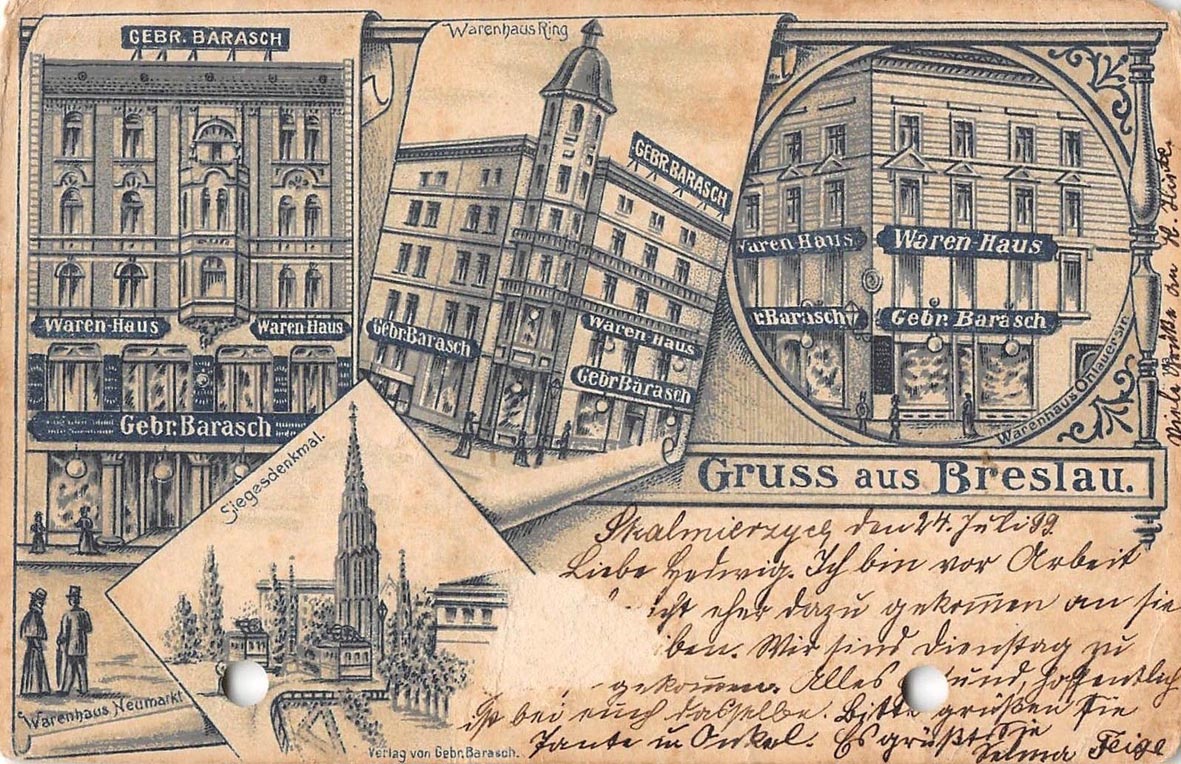 GEBR. BARASCH
Waren-Haus
Waren Haus
Gebr. Barasch
Warenhaus Neumarkt
Warenhaus Ring
GEBR. BARASCH
Gebr. Barasch
Waren-Haus
Gebr Barasch
Waren Haus
Waren-Haus
r. Barasch
Gebr. Barasch
Warenhaus Ohlauerstr.
Siegesdenkmal.
Verlag von Gebr. Barasch.
Gruss aus Breslau.
Skalmierzyce den 24. Juli 99.
Liebe Hedwig. Ich bin vor Arbeit
icht eher dazu gekommen an sie
ben. Wir sind Dienstag zu
gekommen. Alles und, hoffentlich
ist bei euch dasselbe. Bitte grüßen sie
Tante u Onkel. Es grüßt sie
Selma Feige